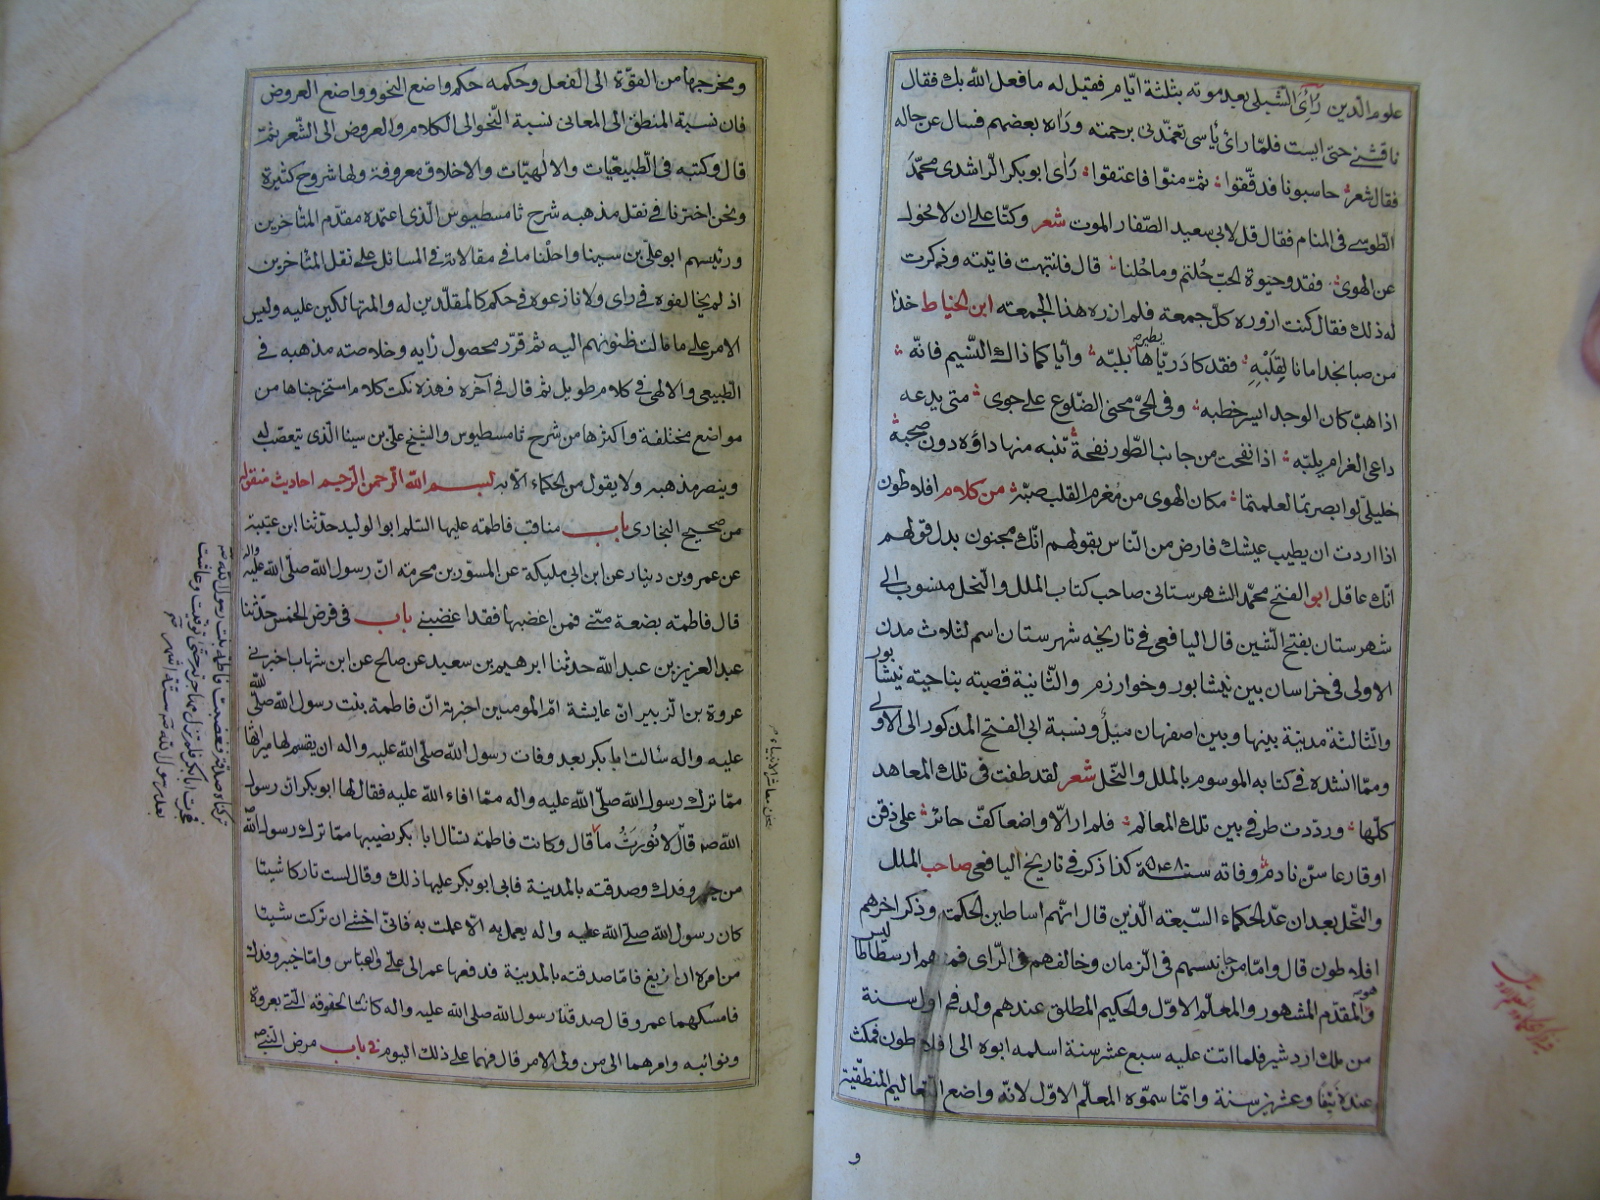 علوم الدين رأى الشبلى بعد موته بثلثة ايّام فقيل له ما فعل الله بك فقال
ناقشنى حتى ايست فلمّا راى يأسى تغمّدنى برحمته ورآه بعضهم فسأل عن حاله
فقال شعر حاسبونا فدقّقوا ثمّ منّوا فاعتقوا رَاى ابو بكر الرّاشدى محمّد
الطّوسى فى المنام فقال قل لابى سعيد الصّفار الموت شعر وكنّا على ان لا نحول
عن الهوى فقد وحيوة الحبّ حُلتم وما حُلنا قال فانتبهت فاتيته وذكرت
له ذلك فقال كنت ازوره كلّ جمعة فلم ازره هذا الجمعته ابن الخياط خذا
من صبا نجد امانا لِقَلبْهِ فقد كاد ريّاها يطير بلبّه وأياكما ذاك النّسيم فانّه
اذا هبّ كان الوجد ايسر خطبه وفى الحىّ محنى الضّلوع على جوى متى يدعه
داعى الغرام يلبّه اذا نفحت من جانب الطّور نفحة تنبّه منها داؤه دون صحبة
خليلّى لو ابصرتما لعلمتما مكان الهوى من مُغرم القلب صبّه من كلام افلاطون
اذا اردت ان يطيب عيشك فارض من النّاس بقولهم انّك مجنون بدل قولهم
انّك عاقل ابو الفتح محمّد الشهرستانى صاحب كتاب الملل والنّحل منسوب الى
شهرستان بفتح الشين قال اليافعى فى تاريخه شهرستان اسم لثلاث مدن
الاولى فى خراسان بين نيشابور وخوارزم والثّانية قصبة بناحية نيشابور
والثالثة مدينة بينها وبين اصفهان ميَل ونسبة ابى الفتح المذكور الى الاولى
وممّا انشده فى كتابه الموسوم بالملل والنّحل شعر لقد طفت فى تلك المعاهد
كلّها وردّدت طرفى بين تلك المعالم فلم ار الّا واضعا كفّ حائر على ذقن
او قارعا سنّ نادم وفاته سنة ٥٤٨ كذا ذكر فى تاريخ اليافعى صاحب الملل
والنّحل بعد ان عدّ الحكماء السّبعة الذين قال انّهم اساطين الحكمة وذكر اخرهم
افلاطون قال وامّا من جانسهم فى الزمان وخالفهم فى الرّاى فمنهم ارسطاطاليس
وهو المقدّم المشهور والمعلّم الاوّل والحكيم المطلق عندهم ولد فى اول سنة
من ملك اردشير فلما اتت عليه سبع عشر سنة اسلمه ابوه الى افلاطون فمكث
عنده نيّفا وعشرين سنة وانّما سمّوه المعلّم الاوّل لانّه واضع التّعاليم المنطقيّة
و
ومخرجها من القوّة الى الفعل وحكمه حكم واضع النحو وواضع العروض
فان نسبة المنطق الى المعانى نسبة النّحو الى الكلام والعروض الى الشّعر ثمّ
قال وكتبه فى الّطبيعيّات والالٰهيّات والاخلاق معروفة ولها شروح كثيرة
ونحن اخترنا فى نقل مذهبه شرح ثامسطيوس الّذى اعتمده مقدّم المتاخرين
ورئيسهم ابو علىّ بن سينا واحلنا ما فى مقالاته فى المسائل على نقل المتاخرين
اذ لم يخالفوه فى راى ولا نازعوه فى حكم كالمقلّدين له والمتهالكين عليه وليس
الامر على ما مالت ظنونهم اليه ثم قرّر محصول رأيه وخلاصته مذهبه فى
الطّبيعى والالهى فى كلام طويل ثم قال فى آخره فهذه نكت كلام استخرجناها من
مواضع مختلفة واكثرها من شرح ثامسطيوس والشيخ علىّ بن سينا الّذى يتعصّب له
وينصر مذهبه ولا يقول من الحكماء الّا به بسم الله الرّحمن الرّحيم احاديث منقوله
من صحيح البخارى باب مناقب فاطمه عليها السّلم ابو الوليد حدّثنا ابن عيينة
عن عمرو بن دينار عن ابن ابى مليكة عن المسوّر بن مخرمته انّ رسول الله صلّى الله عليه واله
قال فاطمة بضعة منّى فمن اغضبها فقد اغضبنى باب فى فرض الخمس حدّثنا
عبد العزيز بن عبد الله حدّثنا ابرهيم بن سعيد عن صالح عن ابن شهاب اخبرنى
عروة بن الزّبير انّ عايشة امّ المومنين اخبرته انّ فاطمة بنت رسول الله صلّى الله
عليه واله سألت ابا بكر بعد وفات رسول الله صلّى الله عليه واله ان يقسم لها ميراثها
ممّا ترك رسول الله صلّى الله عليه واله ممّا افاء الله عليه فقال لها ابو بكر انّ رسول
الله صم قالّ لا نُورَثُ ما قال وكانت فاطمة تسأل ابا بكر نصيبها ممّا ترك رسول الله
من خيبر وفدك وصدقته بالمدينة فابى ابو بكر عليها ذلك وقال لست تاركا شيئا
كان رسول الله صلّى الله عليه واله يعمل به الّا عملت به فانّى اخشى ان تركت شيئا
من امره ان ازيغ فامّا صدقته بالمدينة فدفعها عمر الى علىّ والعبّاس وامّا خيبر وفدك
فامسكهما عمر وقال صدقة رسول الله صلى الله عليه واله كانتا لحقوقه الّتى تعروه
ونوائبه وامرهما الى من ولى الامر قال فهما على ذلك اليوم فى باب مرض النّبى
نحن معاشر الانبياء
تركناه صدقة فغضبت فاطمة بنت رسول الله
فهجرت ابا بكر فلم تزل مهاجرته حتى توفيت وعاشت
بعد رسول الله ستة اشهر